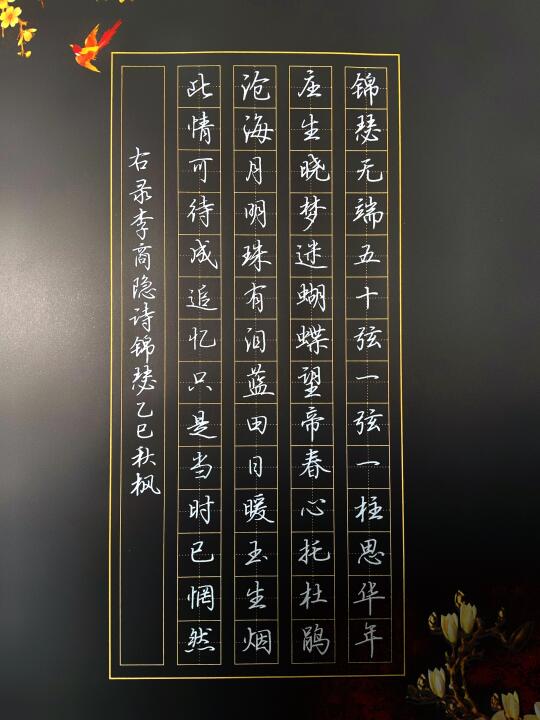 锦瑟无端五十弦一弦一柱思华年
庄生晓梦迷蝴蝶望帝春心托杜鹃
沧海月明珠有泪蓝田日暖玉生烟
此情可待成追忆只是当时已惘然
右录李商隐诗锦瑟乙巳秋枫